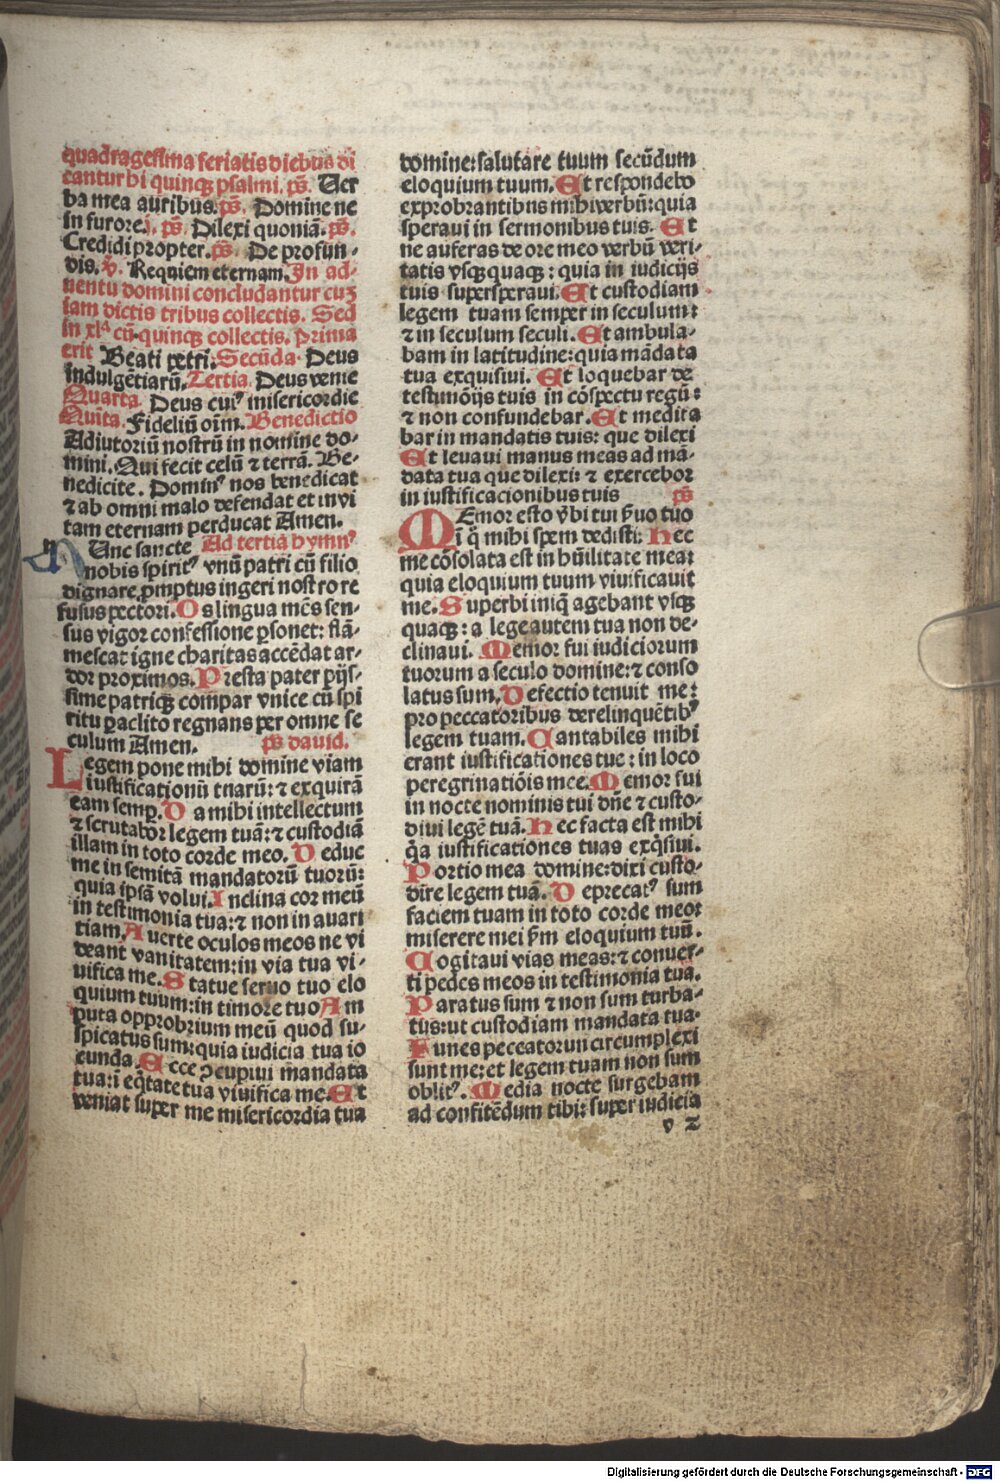 quadragesima feriatis diebus di
cantur bi quinqꝫ psalmi. p̄s. Uer
ba mea auribus. p̄s. Domine ne
in furore. i. p̄s. Dilexi quoniā. p̄s.
Credidi propter. p̄s. De profun-
dis. v̄. Requiem eternam. In ad-
uentu domini concludantur cuꝫ
iam dictis tribus collectis. Sed
in xlᵃ cū quinqꝫ collectis. Prima
erit Beati petri. Secūda Deus
indulgētiarū. Tertia. Deus venie
Quarta. Deus cui⁹ misericordie
Quīta. Fideliū oīm. Benedictio
Adiutoriū nostrū in nomine do-
mini. Qui fecit celū ⁊ terrā. Be-
nedicite. Domin⁹ nos benedicat
⁊ ab omni malo defendat et in vi
tam eternam perducat Amen.
Unc sancte Ad tertiā hymn⁹
nobis spirit⁹ vnū patri cū filio
dignare ꝓmptus ingeri nostro re
fusus pectori. Os lingua mēs sen-
sus vigor confessione ꝑsonet: flā-
mescat igne charitas accēdat ar-
dor proximos. Presta pater pijs-
sime patriqꝫ compar vnice cū spi
ritu ꝑaclito regnans per omne se
culum Amen. p̄s dauid.
Legem pone mihi domine viam
iustificationū tuarū: ⁊ exquirā
eam semꝑ. Da mihi intellectum
⁊ scrutabor legem tuā: ⁊ custodiā
illam in toto corde meo. Deduc
me in semitā mandatorū tuorū:
quia ipsā volui. Inclina cor meū
in testimonia tua: ⁊ non in auari
tiam. Auerte oculos meos ne vi
deant vanitatem: in via tua vi-
uifica me. Statue seruo tuo elo
quium tuum: in timore tuo Am
puta opprobrium meū quod su-
spicatus sum: quia iudicia tua io
cunda. Ecce ꝯcupiui mandata
tua: ī eq̄tate tua viuifica me. Et
veniat super me misericordia tua
domine: salutare tuum secūdum
eloquium tuum. Et respondebo
exprobrantibus mihi verbū: quia
speraui in sermonibus tuis. Et
ne auferas de ore meo verbū veri-
tatis vsqꝫquaqꝫ: quia in iudicijs
tuis supersperaui. Et custodiam
legem tuam semper in seculum:
⁊ in seculum seculi. Et ambula-
bam in latitudine: quia mādata
tua exquisiui. Et loquebar de
testimōijs tuis in cōspectu regū:
⁊ non confundebar. Et medita
bar in mandatis tuis: que dilexi
Et leuaui manus meas ad mā-
data tua que dilexi: ⁊ exercebor
in iustificacionibus tuis p̄s
MEmor esto v̄bi tui ẜuo tuo
ī q̄ mihi spem dedisti: Hec
me cōsolata est in hūilitate mea:
quia eloquium tuum viuificauit
me. Superbi iniq̄ agebant vsqꝫ
quaqꝫ: a lege autem tua non de-
clinaui. Memor fui iudiciorum
tuorum a seculo domine: ⁊ conso
latus sum. Defectio tenuit me:
pro peccatoribus derelinquētib⁹
legem tuam. Cantabiles mihi
erant iustificationes tue: in loco
peregrinatiōis mee. Memor fui
in nocte nominis tui dn̄e ⁊ custo-
diui legē tuā. Hec facta est mihi
q̄a iustificationes tuas exq̄siui.
Portio mea domine: dixi custo-
dire legem tuā. Deprecat⁹ sum
faciem tuam in toto corde meo:
miserere mei ẜm eloquium tuū.
Cogitaui vias meas: ⁊ conuer-
ti pedes meos in testimonia tua.
Paratus sum ⁊ non sum turba-
tus: ut custodiam mandata tua.
Funes peccatorum circumplexi
sunt me: et legem tuam non sum
oblit⁹. Media nocte surgebam
ad confitēdum tibi: super iudicia
v 2
Digitalisierung gefördert durch die Deutsche Forschungsgemeinschaft - DFG